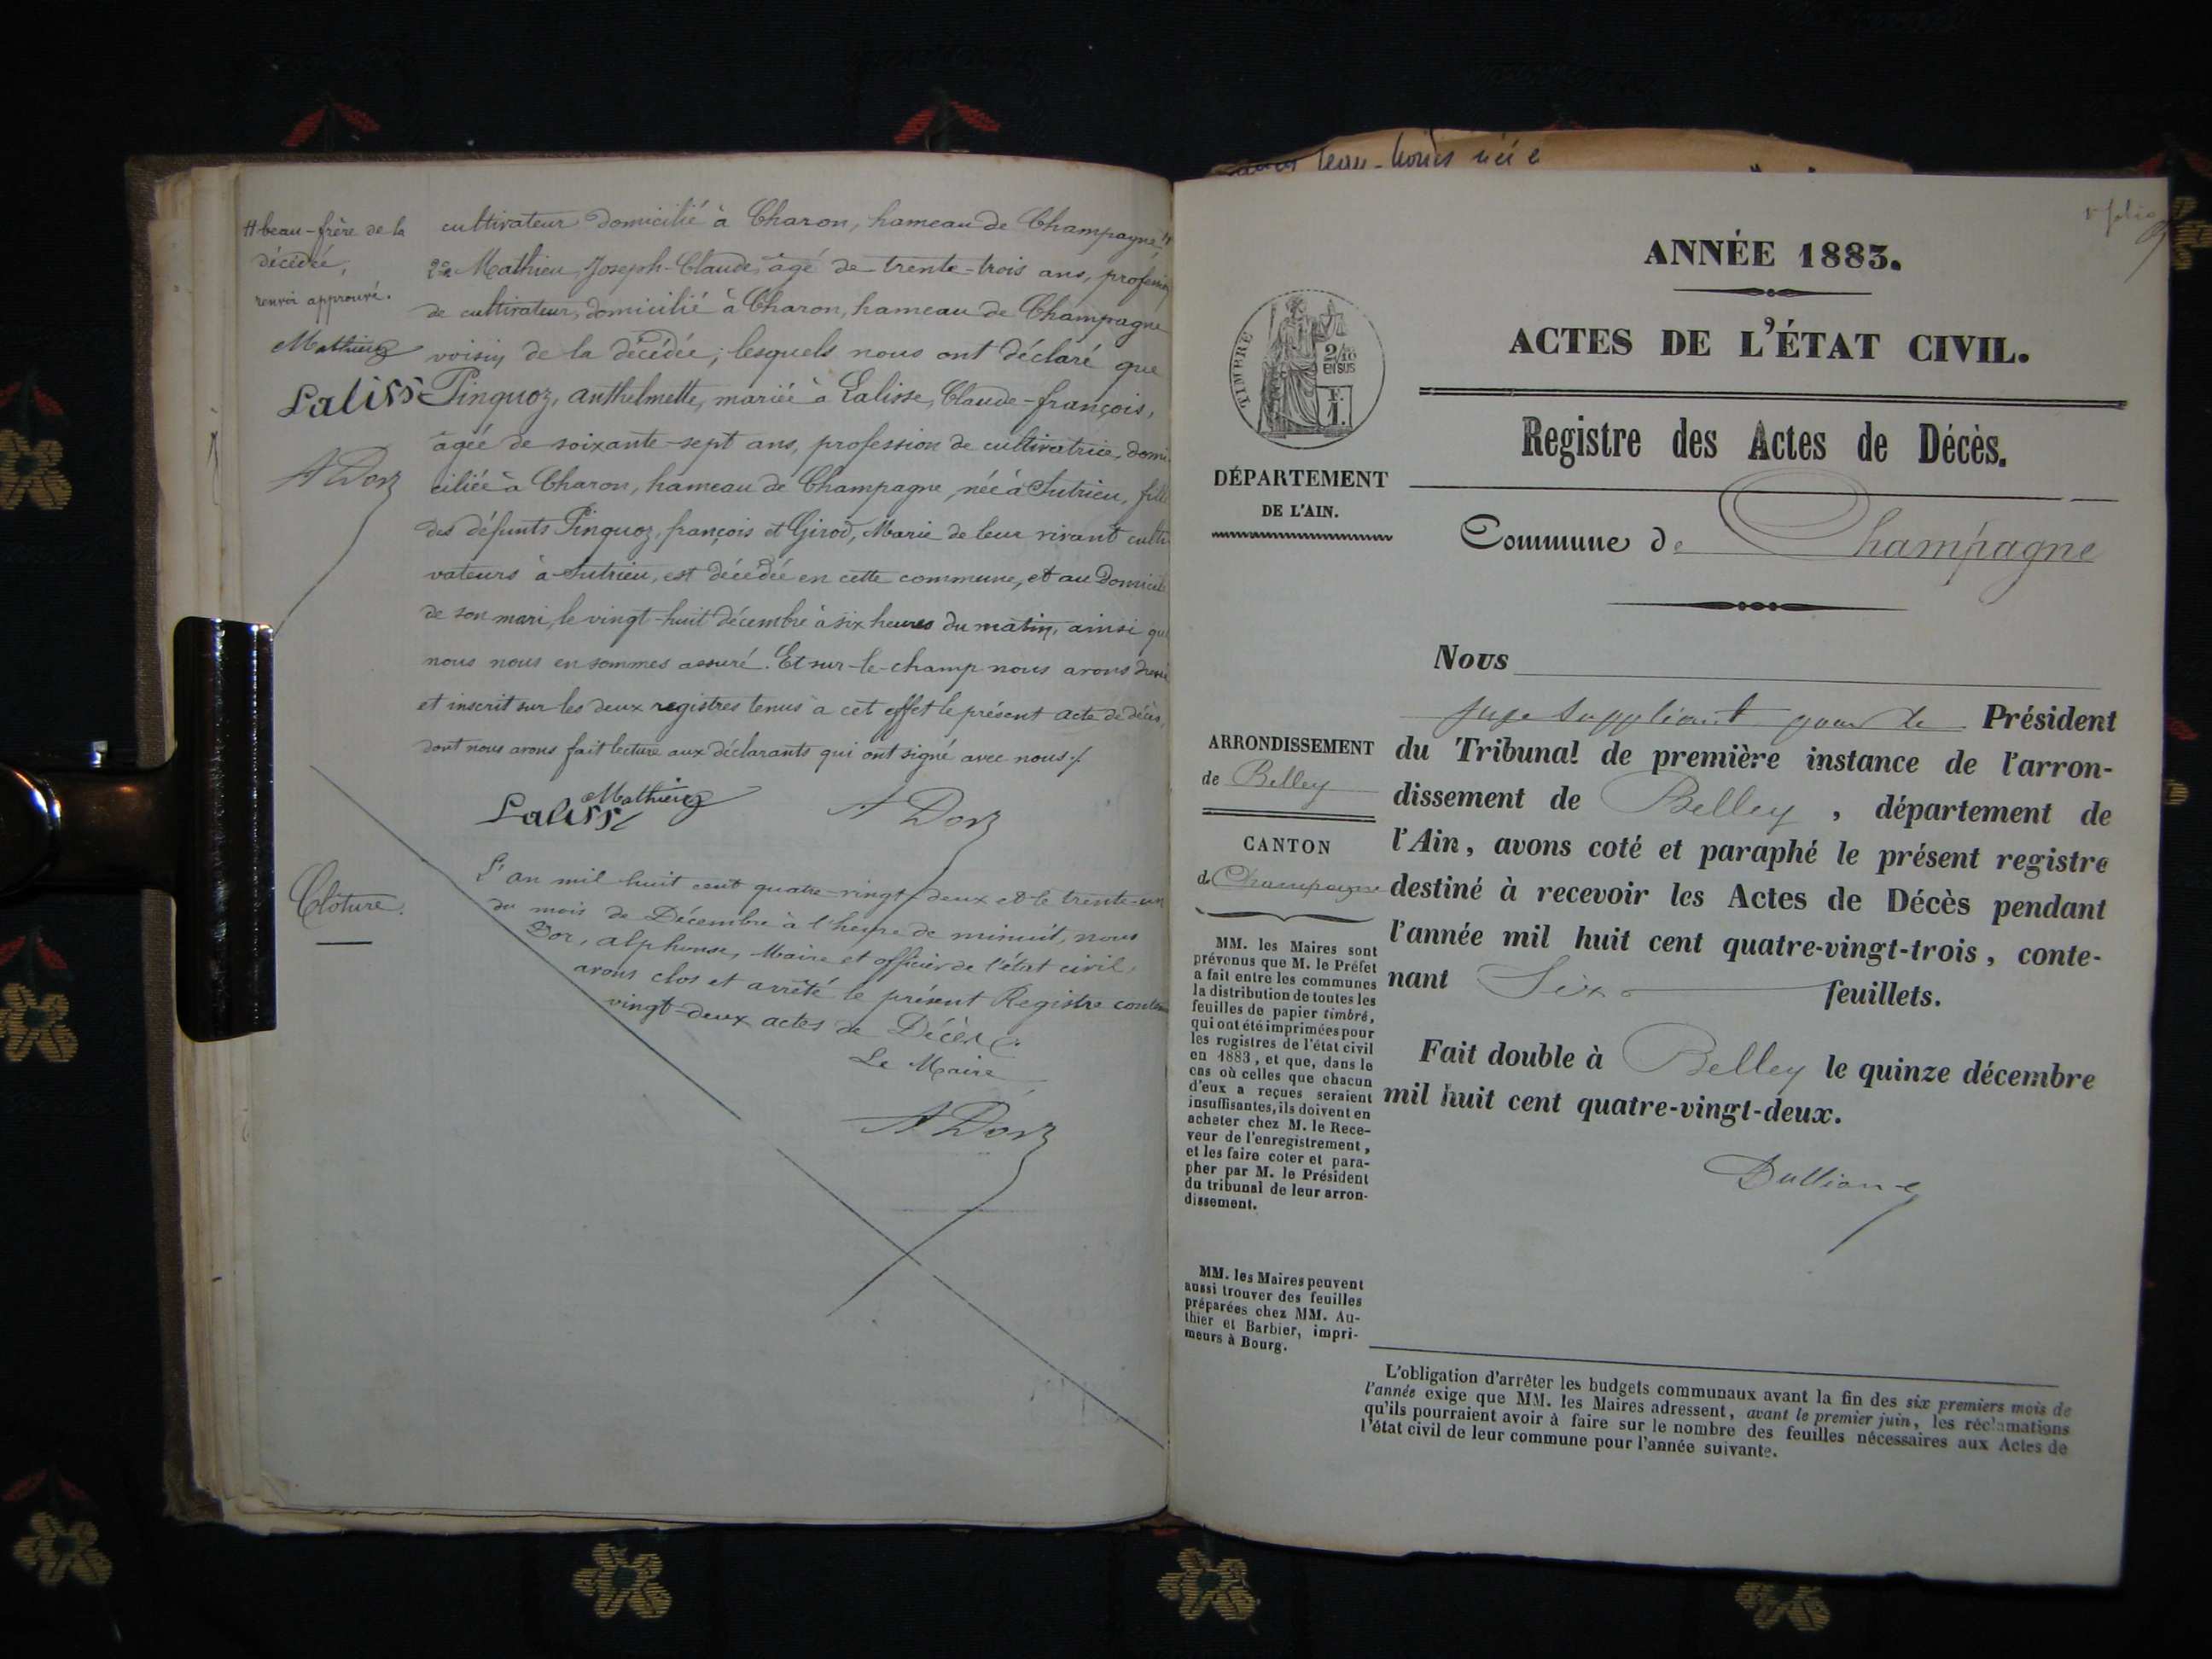 # beau-frère de la
décédée,
renvoi approuvé.
Mathieu
Lalisse
A Dor
cultivateur domicilié à Charon, hameau de Champagne #
2° Mathieu, Joseph-Claude, âgé de trente-trois ans, profession
de cultivateur, domicilié à Charon, hameau de Champagne
voisin de la décédée; lesquels nous ont déclaré que
Pinguoz, anthelmette, mariée à Lalisse, Claude-françois,
âgée de soixante-sept ans, profession de cultivatrice, domi-
ciliée à Charon, hameau de Champagne, née à Sutrieu, fille
des défunts Pinguoz, françois et Girod, Marie de leur vivant culti
vateurs à Sutrieu, est décédée en cette commune, et au Domicile
de son mari, le vingt-huit décembre à six heures du matin, ainsi que
nous nous en sommes assuré. Et sur-le-champ nous avons dressé
et inscrit sur les deux registres tenus à cet effet le présent acte de décès,
dont nous avons fait lecture aux déclarants qui ont signé avec nous ./.
Mathieu
Lalisse
A Dor
Clôture.
L'an mil huit cent quatre-vingt-deux et le trente-un
du mois de Décembre à l'heure de minuit, nous
Dor, alphonse, Maire et officier de l'état civil,
avons clos et arrêté le présent Registre contenant
vingt-deux actes de Décès ./.
Le Maire
A Dor
1er folio
ANNÉE 1883.
ACTES DE L'ÉTAT CIVIL.
TIMBRE
2/10
EN SUS
F.
1.
DÉPARTEMENT
DE L'AIN.
Registre des Actes de Décès.
Commune de Champagne
ARRONDISSEMENT
de Belley
CANTON
de Champagne
MM. les Maires sont
prévenus que M. le Préfet
a fait entre les communes
la distribution de toutes les
feuilles de papier timbré,
qui ont été imprimées pour
les registres de l'état civil
en 1883, et que, dans le
cas où celles que chacun
d'eux a reçues seraient
insuffisantes, ils doivent en
acheter chez M. le Rece-
veur de l'enregistrement,
et les faire coter et para-
pher par M. le Président
du tribunal de leur arron-
dissement.
MM. les Maires peuvent
aussi trouver des feuilles
préparées chez MM. Au-
thier et Barbier, impri-
meurs à Bourg.
Nous
juge suppléant pour le Président
du Tribunal de première instance de l'arron-
dissement de Belley, département de
l'Ain, avons coté et paraphé le présent registre
destiné à recevoir les Actes de Décès pendant
l'année mil huit cent quatre-vingt-trois, conte-
nant Six feuillets.
Fait double à Belley le quinze décembre
mil huit cent quatre-vingt-deux.
L'obligation d'arrêter les budgets communaux avant la fin des six premiers mois de
l'année exige que MM. les Maires adressent, avant le premier juin, les réclamations
qu'ils pourraient avoir à faire sur le nombre des feuilles nécessaires aux Actes de
l'état civil de leur commune pour l'année suivante.